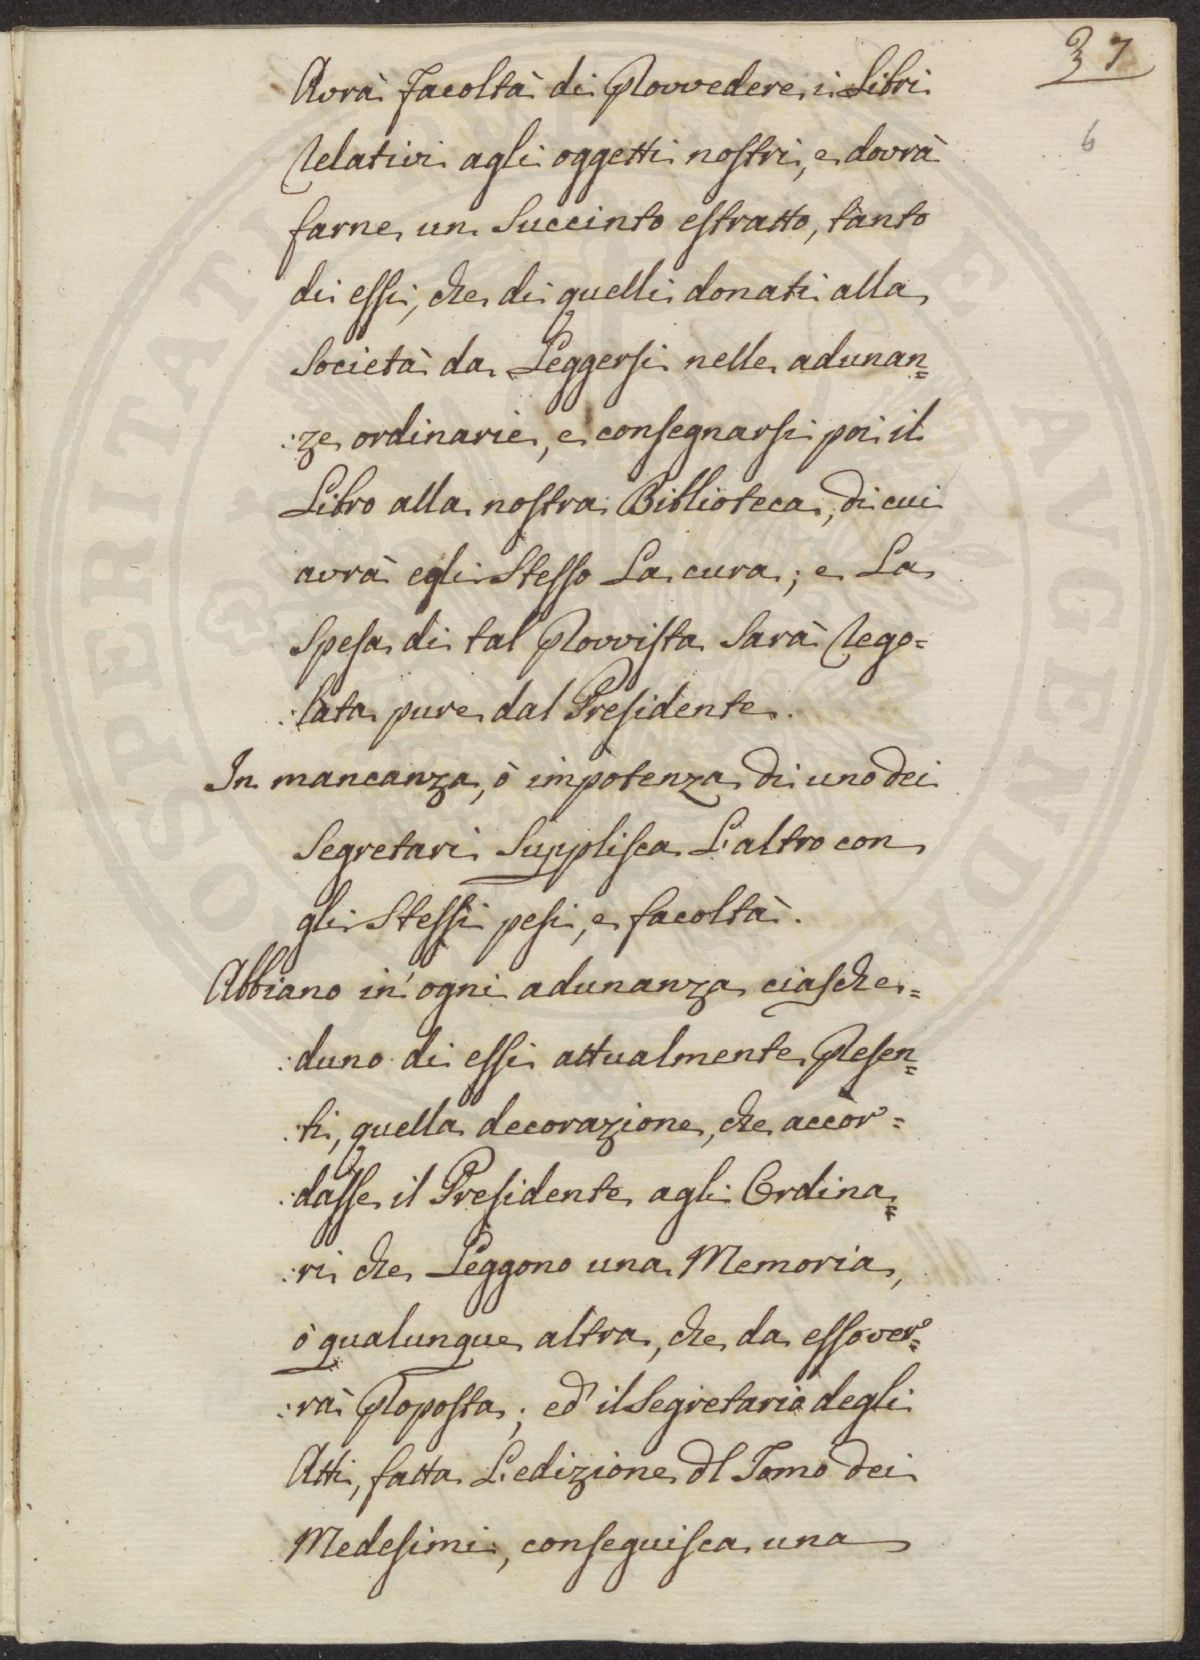 37
6
Avrà facoltà di Provvedere i Libri
relativi agli oggetti nostri, e dovrà
farne un Succinto estratto, tanto
di essi, che di quelli donati alla
Società da Leggersi nelle adunan=
:ze ordinarie, e consegnarsi poi il
Libro alla nostra Biblioteca, di cui
avrà egli Stesso La cura; e La
Spesa di tal Provvista Sarà rego=
:lata pure dal Presidente.
In mancanza, ò impotenza di uno dei
Segretari Supplisca L'altro con
gli Stessi pesi, e facoltà.
Abbiano in ogni adunanza ciasche=
:duno di essi attualmente Presen=
:ti, quella decorazione, che accor=
:dasse il Presidente agli Ordina=
:ri che Leggono una Memoria,
ò qualunque altra, che da esso ver=
:rà Proposta; ed il Segretario degli
Atti, fatta L'edizione dl Tomo dei
Medesimi, conseguisca una
PROSPERITATI PUBLICAE AUGENDAE